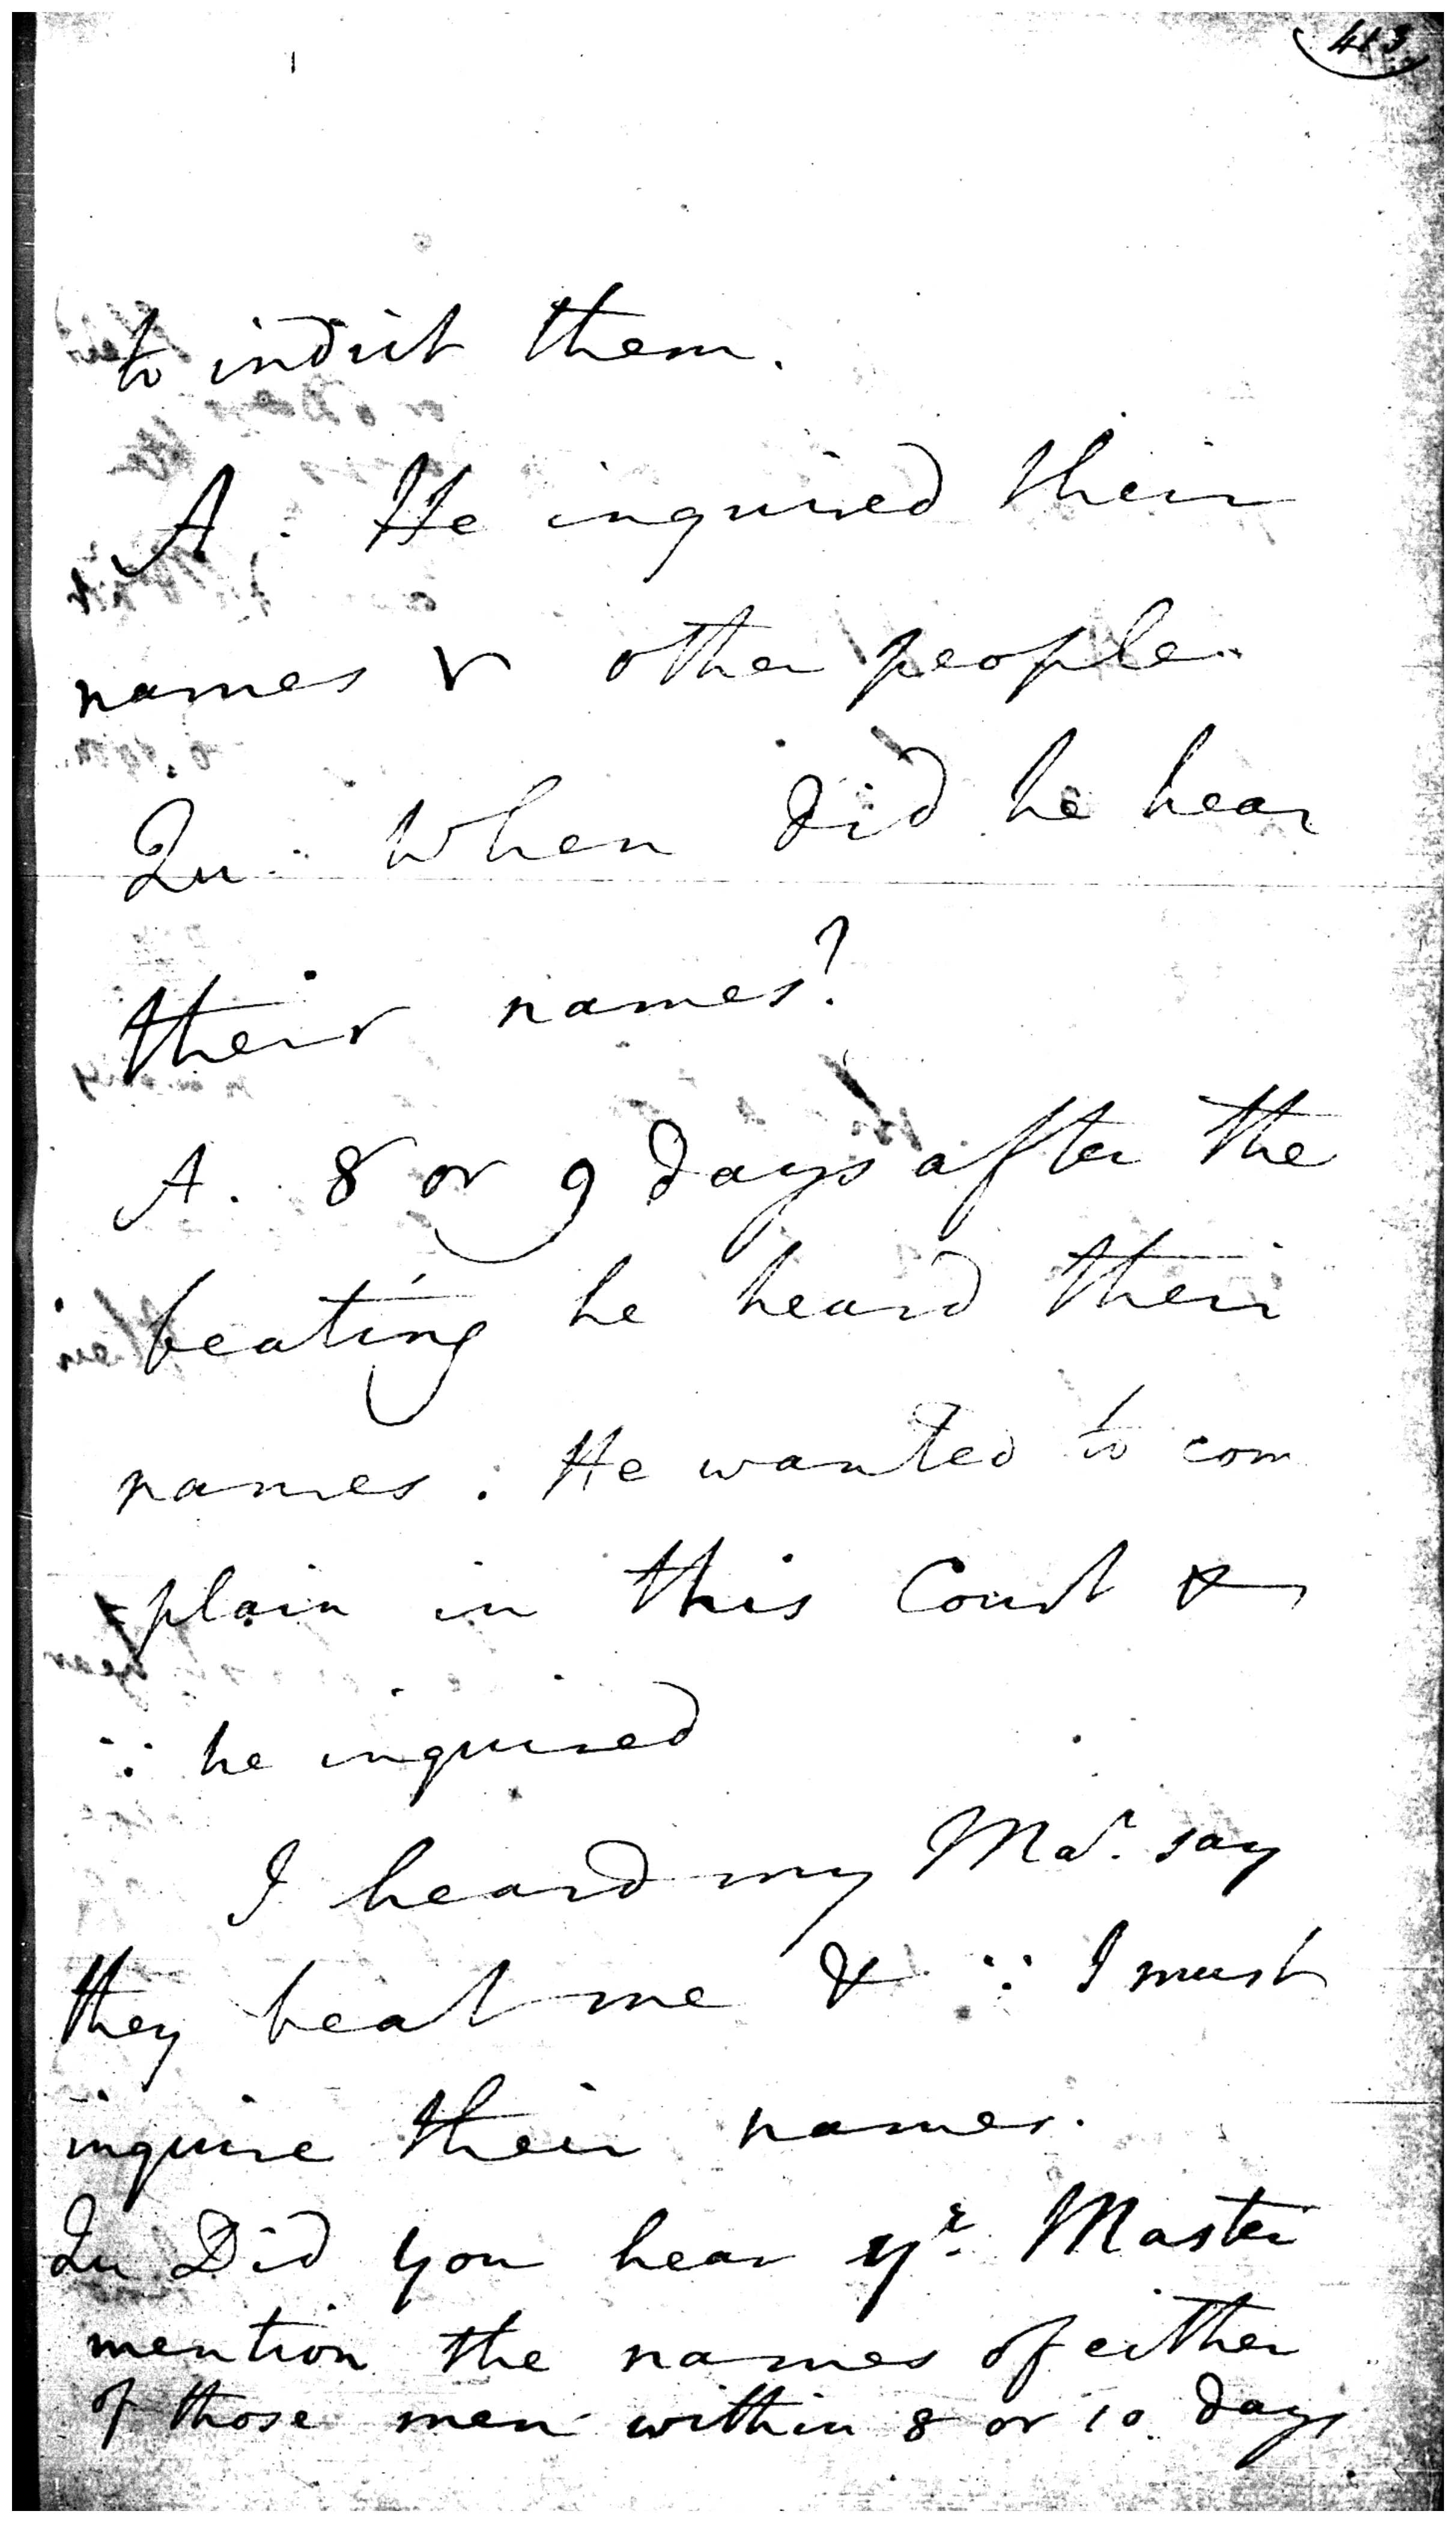 413
to indict them.
A. He inquired their
names & other people.
Qu. When did he hear
their names?
A. 8 or 9 days after the
beating he heard their
names. He wanted to com
-plain in this Court &
∵ he inquired
I heard my Mar. say
they beat me & ∵ I must
inquire their names.
Qu Did you hear yr. Master
mention the names of either
of those men within 8 or 10 days